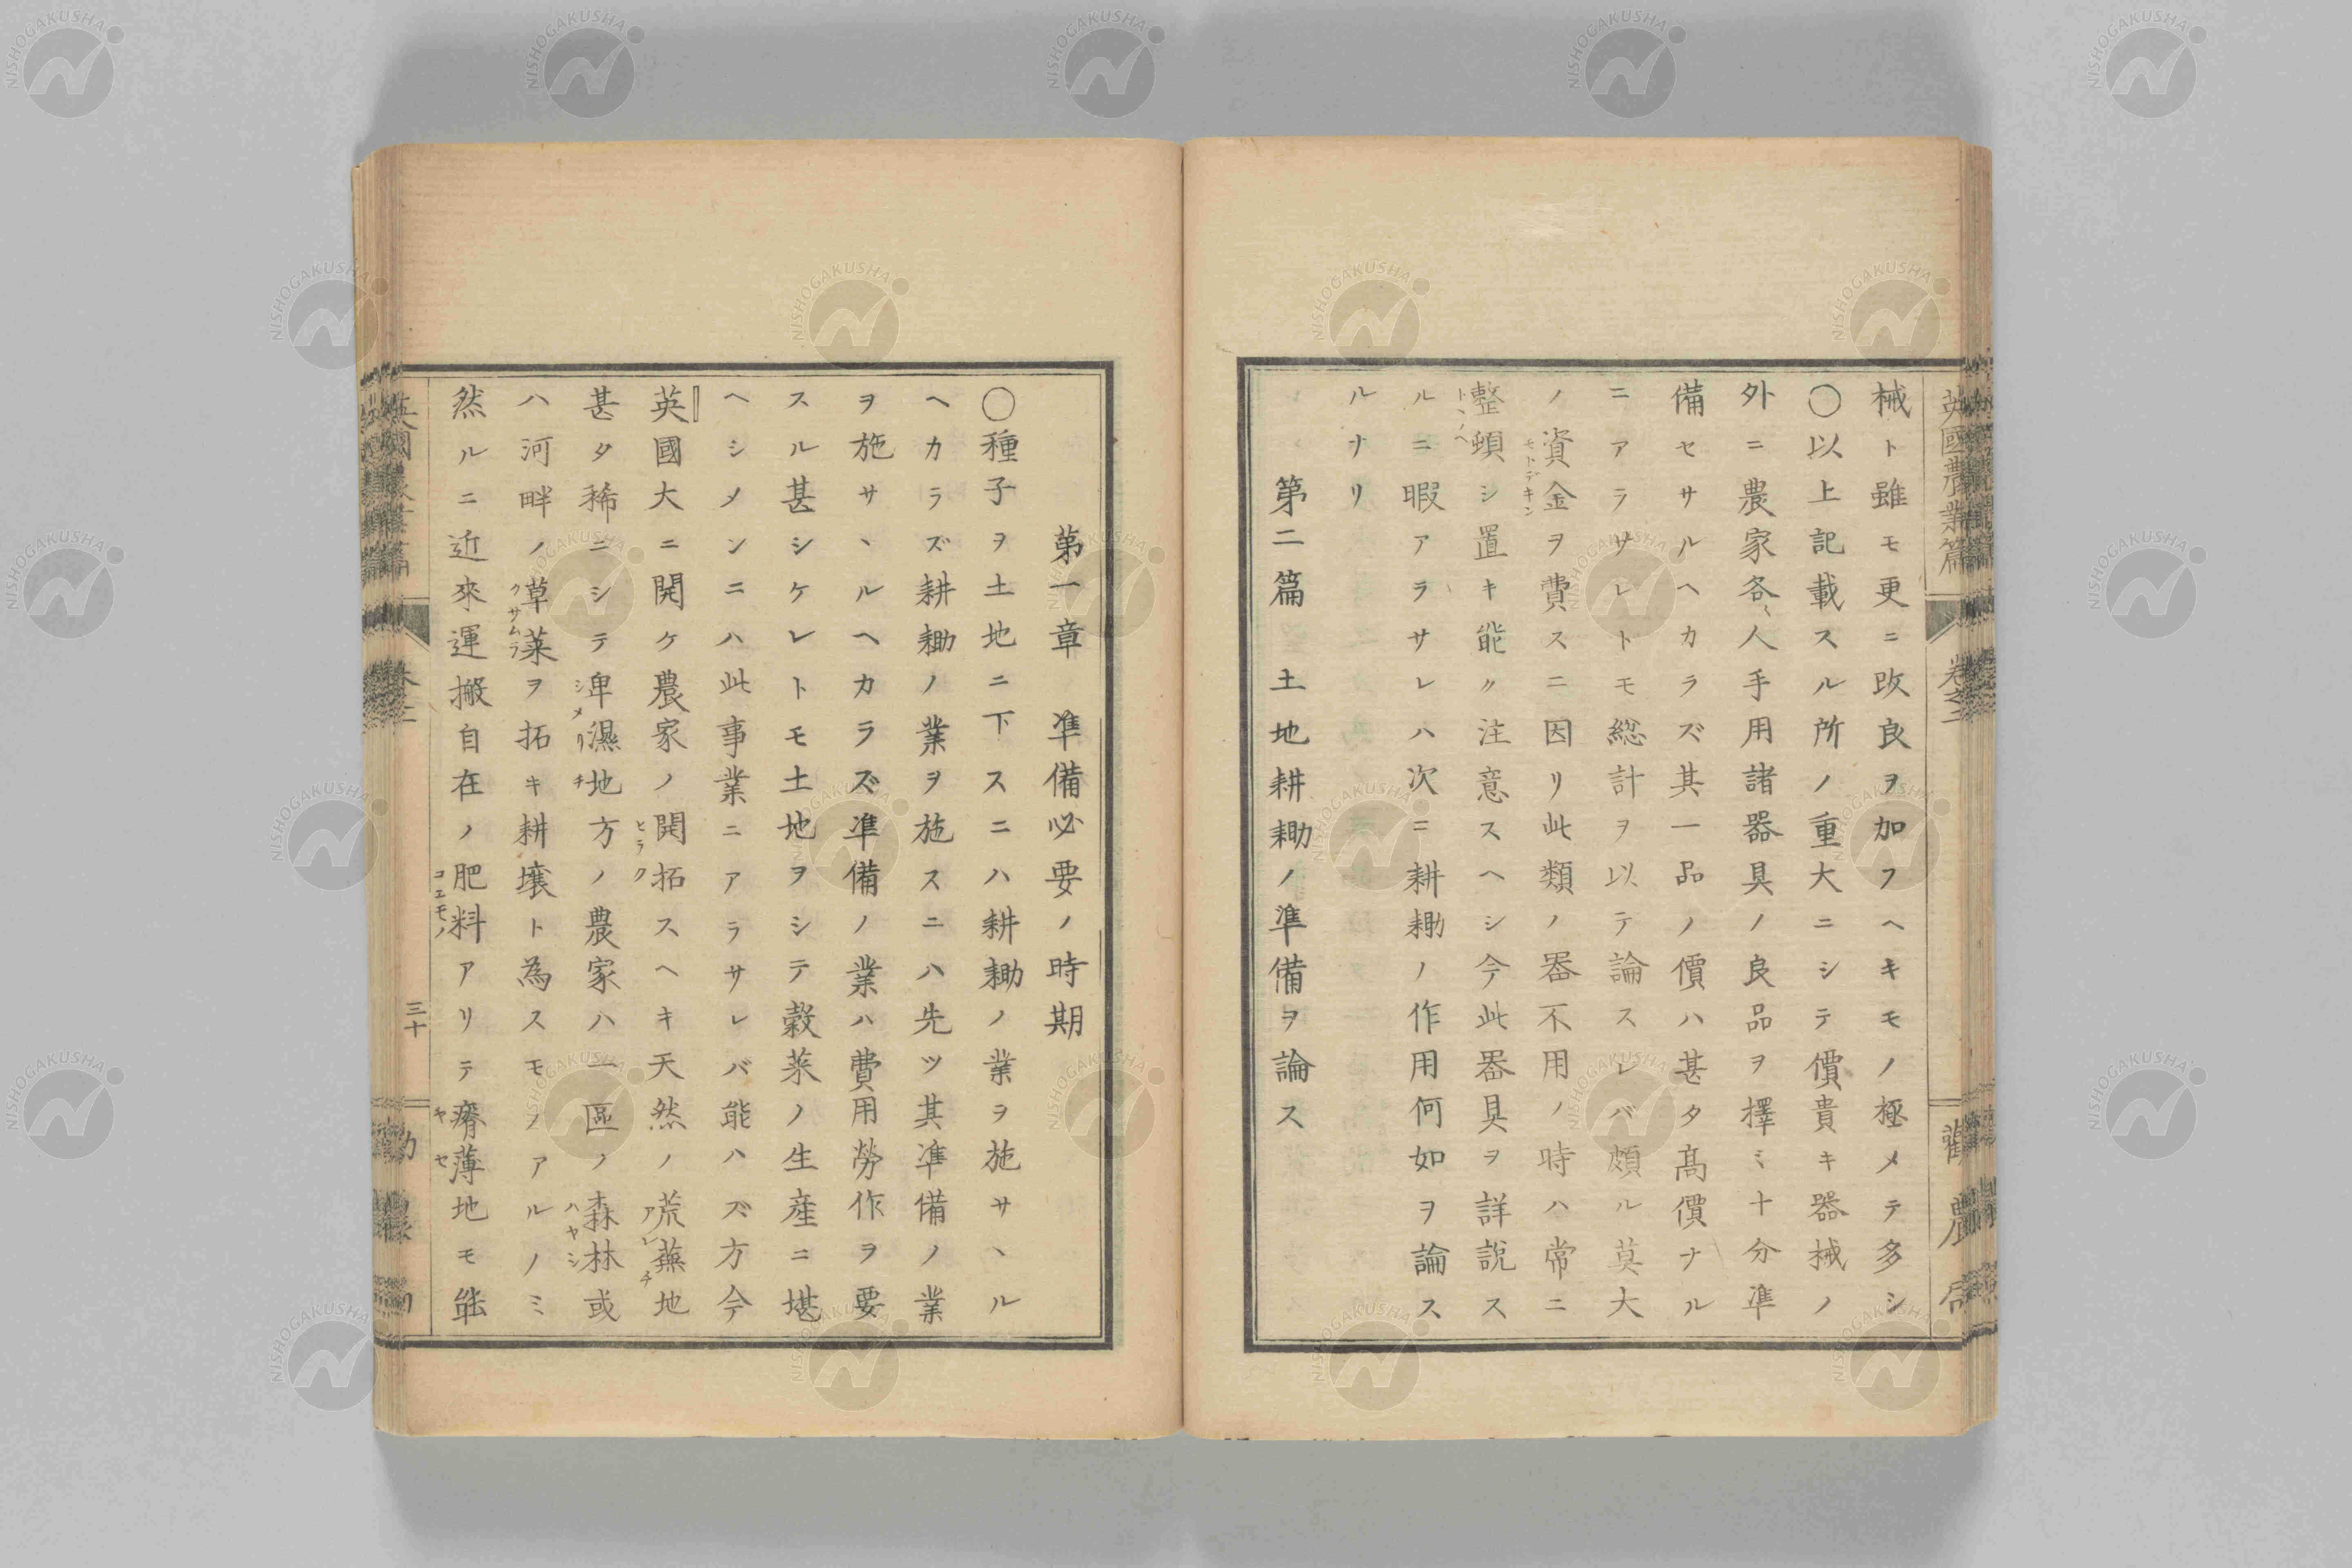 械ト雖モ更ニ改良ヲ加フヘキモノ極メテ多シ
〇以上記載スル所ノ重大ニシテ價貴キ器械ノ
外ニ農家各〻人手用諸器具ノ良品ヲ擇ミ十分準
備セサルヘカラズ其一品ノ價ハ甚タ高價ナル
ニアラサレトモ総計ヲ以テ論スレバ頗ル莫大
ノ資金ヲ費スニ因リ此類ノ器不用ノ時ハ常ニ
モトデキン
整頓シ置キ能ク注意スヘシ今此器具ヲ詳說ス
トヽノヘ
ルニ暇アラサレハ次ニ耕耡ノ作用何如ヲ論ス
ルナリ
第二篇 土地耕耡ノ準備ヲ論ス
英國農業篇 卷之二 勸農局
第一章 準備必要ノ時期
〇種子ヲ土地ニ下スニハ耕耡ノ業ヲ施サヽル
ヘカラズ耕耡ノ業ヲ施スニハ先ツ其準備ノ業
ヲ施サヽルヘカラズ準備ノ業ハ費用勞作ヲ要
スル甚シケレトモ土地ヲシテ穀菜ノ生産ニ堪
ヘシメンニハ此事業ニアラサレバ能ハズ方今
英國大ニ開ケ農家ノ開拓スヘキ天然ノ荒蕪地
ヒラク
アレチ
甚タ稀ニシテ卑濕地方ノ農家ハ一區ノ森林或
シメリチ
ハヤシ
ハ河畔ノ草莱ヲ拓キ耕壤ト為スモノアルノミ
クサムラ
然ルニ近來運搬自在ノ肥料アリテ瘠薄地モ能
コエモノ
ヤセ
三十
NISHOGAKUSHA